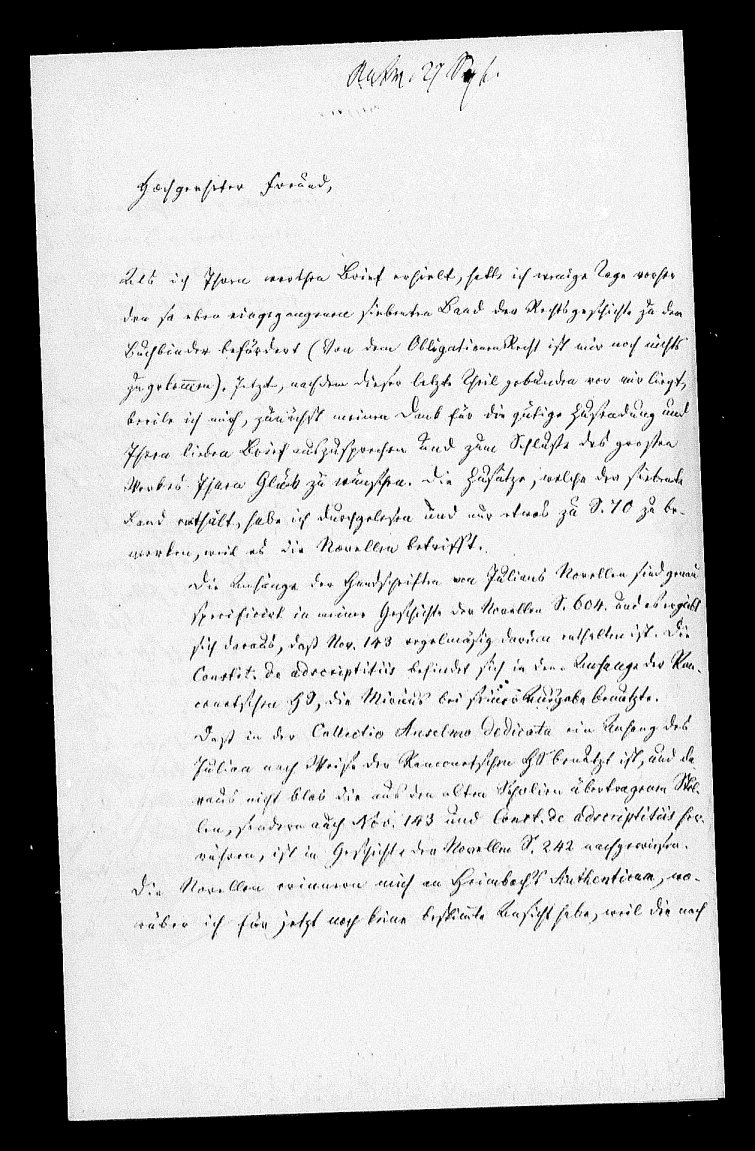 27 Sept.
Hochgeehrter Freund,
Als ich Ihren werthen Brief erhielt, hatte ich wenige Tage vorher
den so eben eingegangenen siebenten Band der Rechtsgeschichte zu dem
Buchbinder befördert (Von dem ObligationenRecht ist mir noch nichts
zugekommen). Jetzt, nachdem dieser letzte Theil gebunden vor mir liegt,
beeile ich mich, zunächst meinen Dank für die gütige Zusendung und
Ihren lieben Brief auszusprechen und zum Schlusse des großen
Werkes Ihnen Glück zu wünschen. Die Zusätze, welche der siebente
Band enthält, habe ich durchgelesen und nur etwas zu S. 70 zu be-
merken, weil es die Novellen betrifft.
Die Anhänge der Handschriften von Julians Novellen sind genau
specificirt in meine Geschichte der Novellen S. 604. und es ergiebt
sich daraus, daß Nov. 143 regelmäßig darin enthalten ist. Die
Constit. de adscriptitiis befindet sich in dem Anhange der Ran-
conetschen HS, die Miraeus bei seiner Ausgabe benutzte.
Daß in der Collectio Anselmo dedicata ein Anhang des
Julian nach Weise der Ranconetschen HS benutzt ist, und da
raus nicht blos die aus den alten Scholien übertragenen Stel-
len, sondern auch Nov. 143 und Const. de adscriptitiis her-
rühren, ist in Geschichte der Novellen S. 242 nachgewiesen.
Die Novellen erinnern mich an Heimbach's Authenticum, wo-
rüber ich für jetzt noch keine bestimmte Ansicht habe, weil die noch